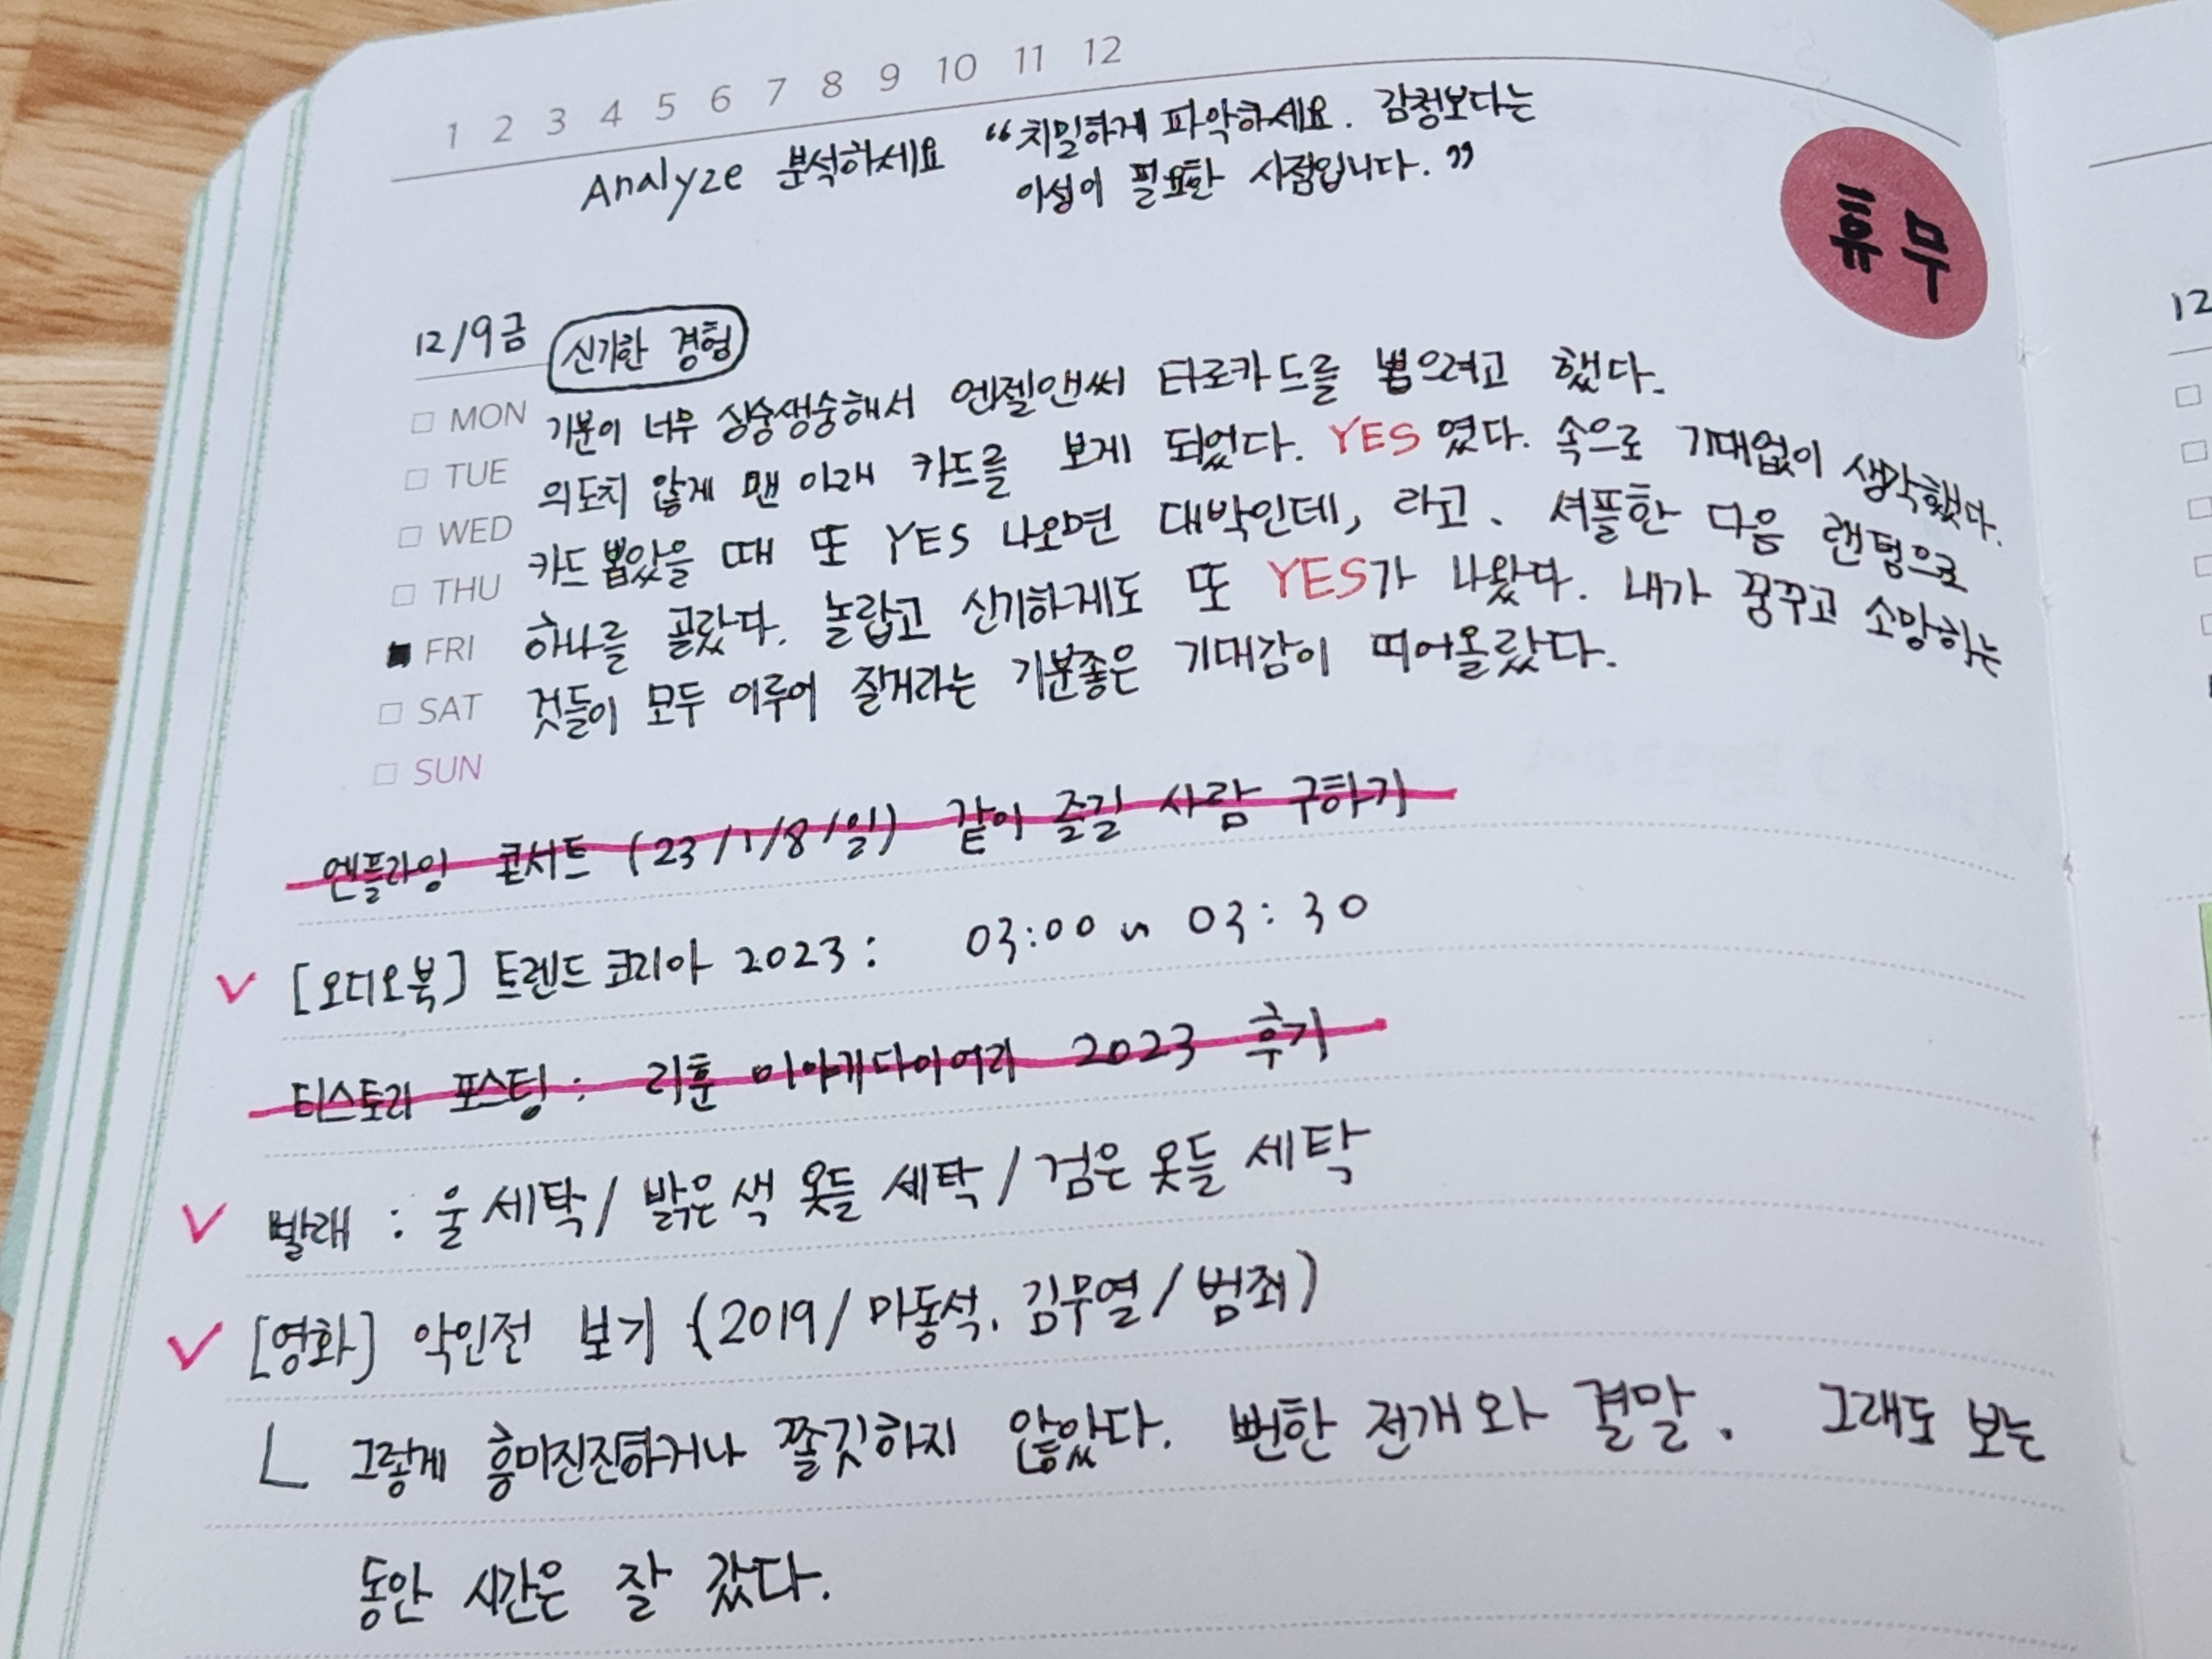 1 2 3 4 5 6 7 8 9 10 11 12
Analyze 분석하세요 “치밀하게 파악하세요. 감정보다는
이성이 필요한 시점입니다.”
휴무
12/9금 신기한 경험
MON 기분이 너무 싱숭생숭해서 엔젤앤써 타로카드를 뽑으려고 했다.
TUE 의도치 않게 맨 아래 카드를 보게 되었다. YES 였다. 속으로 기대없이 생각했다.
WED 카드 뽑았을 때 또 YES 나오면 대박인데, 라고. 셔플한 다음 랜덤으로
THU 하나를 골랐다. 놀랍고 신기하게도 또 YES가 나왔다. 내가 꿈꾸고 소망하는
FRI 것들이 모두 이루어 질거라는 기분좋은 기대감이 떠어올랐다.
SAT
SUN
엔플라잉 콘서트 (23/1/8/일) 같이 즐길 사람 구하기
✓ [오디오북] 트렌드 코리아 2023: 03:00 ~ 03:30
티스토리 포스팅: 리훈 이야기다이어리 2023 후기
✓ 빨래 : 울 세탁/ 밝은 색 옷들 세탁/ 검은 옷들 세탁
✓ [영화] 악인전 보기 (2019/ 마동석, 김무열/ 범죄)
ㄴ 그렇게 흥미진진하거나 쫄깃하지 않았다. 뻔한 전개와 결말. 그래도 보는
동안 시간은 잘 갔다.
12